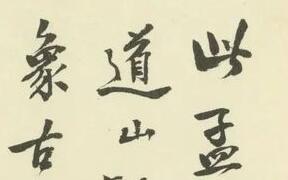 此孟
道山
象古